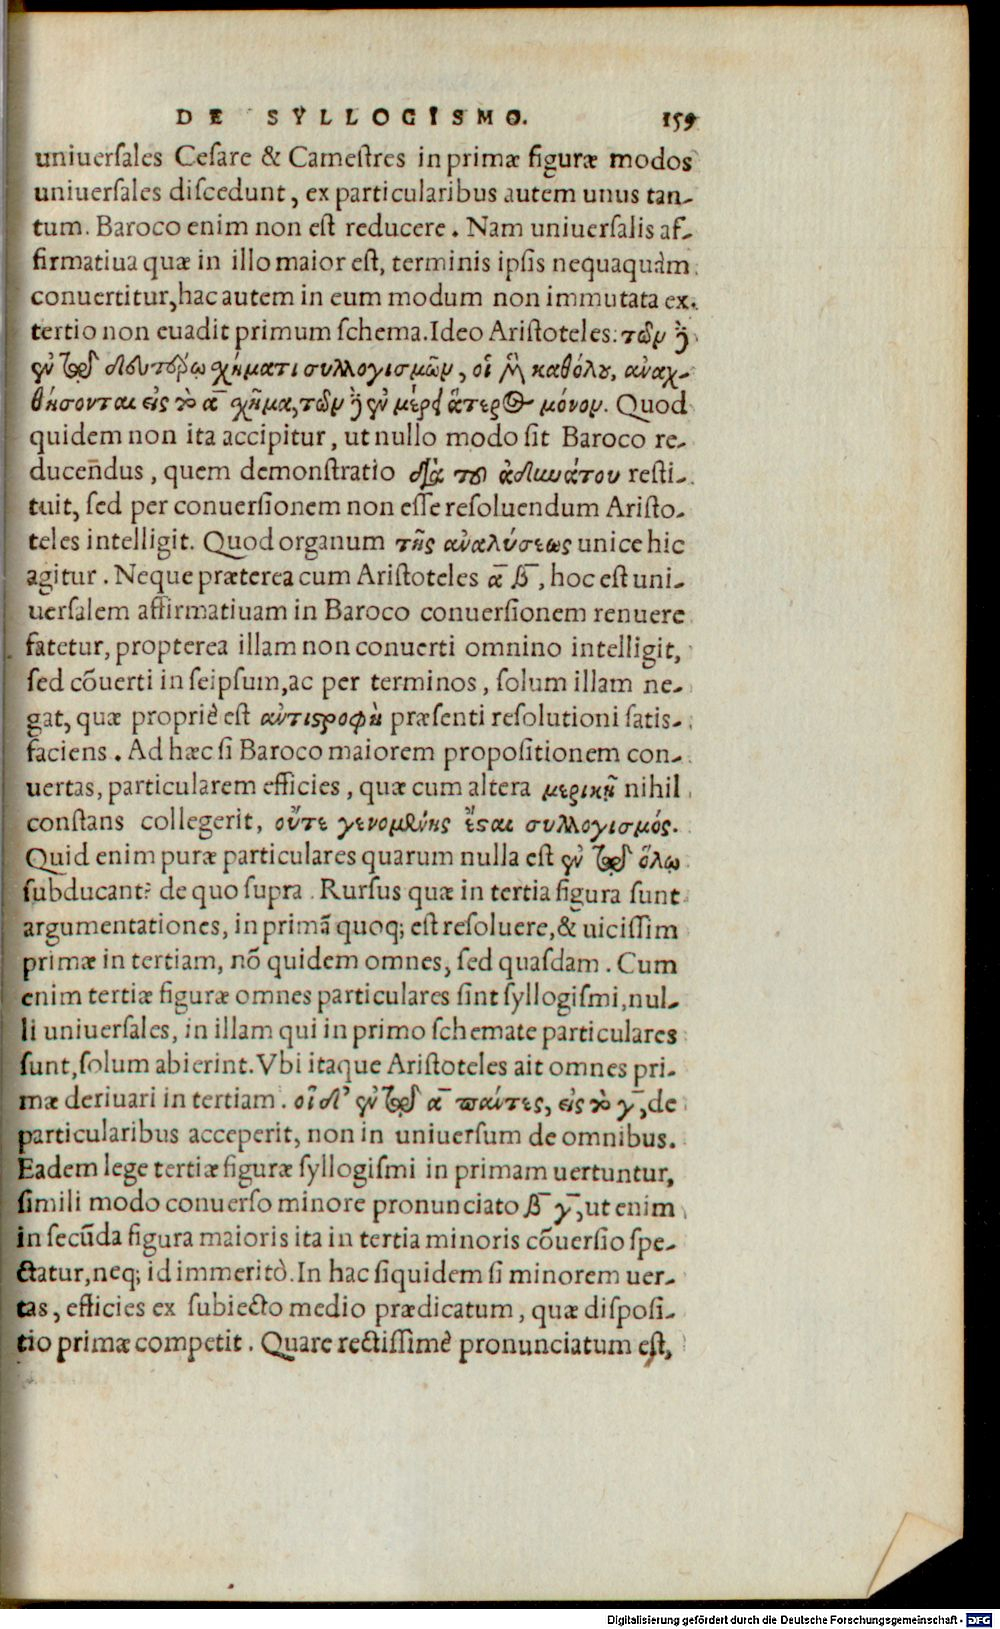 DE SYLLOGISMO. 159
uniuersales Cesare & Camestres in primæ figuræ modos
uniuersales discedunt, ex particularibus autem unus tan-
tum. Baroco enim non est reducere. Nam uniuersalis af-
firmatiua quæ in illo maior est, terminis ipsis nequaquàm
conuertitur, hac autem in eum modum non immutata ex
tertio non euadit primum schema. Ideo Aristoteles: τῶν δὲ
ἐν τῷ δευτέρῳ χήματι συλλογισμῶν, οἱ μὲν καθόλου, ἀναχ-
θήσονται εἰς τὸ α̅ χῆμα, τῶν δὲ ἐν μέρει ἅτερος μόνον. Quod
quidem non ita accipitur, ut nullo modo sit Baroco re-
ducendus, quem demonstratio διὰ τοῦ ἀδυνάτου resti-
tuit, sed per conuersionem non esse resoluendum Aristo-
teles intelligit. Quod organum τῆς ἀναλύσεως unice hic
agitur. Neque præterea cum Aristoteles α̅ β̅, hoc est uni-
uersalem affirmatiuam in Baroco conuersionem renuere
fatetur, propterea illam non conuerti omnino intelligit,
sed cōuerti in seipsum, ac per terminos, solum illam ne-
gat, quæ propriè est ἀντιστροφὴ præsenti resolutioni satis-
faciens. Ad hæc si Baroco maiorem propositionem con-
uertas, particularem efficies, quæ cum altera μερικῇ nihil
constans collegerit, οὔτε γενομένης ἔσται συλλογισμός.
Quid enim puræ particulares quarum nulla est ἐν τῷ ὅλῳ
subducant? de quo supra. Rursus quæ in tertia figura sunt
argumentationes, in primā quoq; est resoluere, & uicissim
primæ in tertiam, nō quidem omnes, sed quasdam. Cum
enim tertiæ figuræ omnes particulares sint syllogismi, nul-
li uniuersales, in illam qui in primo schemate particulares
sunt, solum abierint. Vbi itaque Aristoteles ait omnes pri-
mæ deriuari in tertiam. οἱ δ' ἐν τῷ α̅ πάντες, εἰς τὸ γ̅, de
particularibus acceperit, non in uniuersum de omnibus.
Eadem lege tertiæ figuræ syllogismi in primam uertuntur,
simili modo conuerso minore pronunciato β̅ γ̅, ut enim
in secūda figura maioris ita in tertia minoris cōuersio spe-
ctatur, neq; id immeritò. In hac siquidem si minorem uer-
tas, efficies ex subiecto medio prædicatum, quæ disposi-
tio primæ competit. Quare rectissimè pronunciatum est,
Digitalisierung gefördert durch die Deutsche Forschungsgemeinschaft - DFG